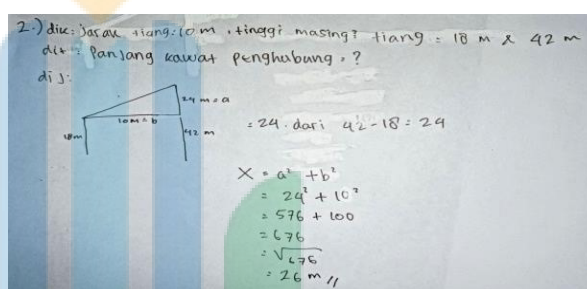 2.) dik: Jarak tiang: 10 m, tinggi masing² tiang = 18 m & 42 m
dit: Panjang kawat penghubung, ?
dij:
24 m = a
10 m = b
18m
42 m
= 24. dari 42 - 18 = 24
X = a² + b²
= 24² + 10²
= 576 + 100
= 676
= √676
= 26 m //